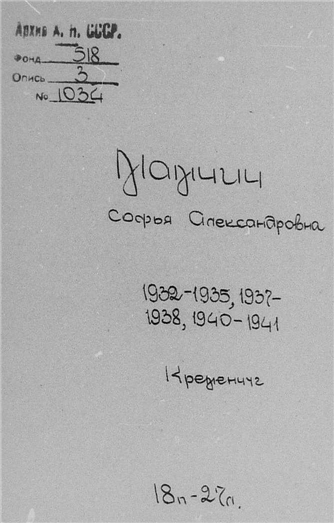 Архив А. Н. СССР.
Фонд 518
Опись 3
№ 1034
Мамчич
Софья Александровна
1932-1935, 1937-
1938, 1940-1941
Кременчуг
18п-27л.